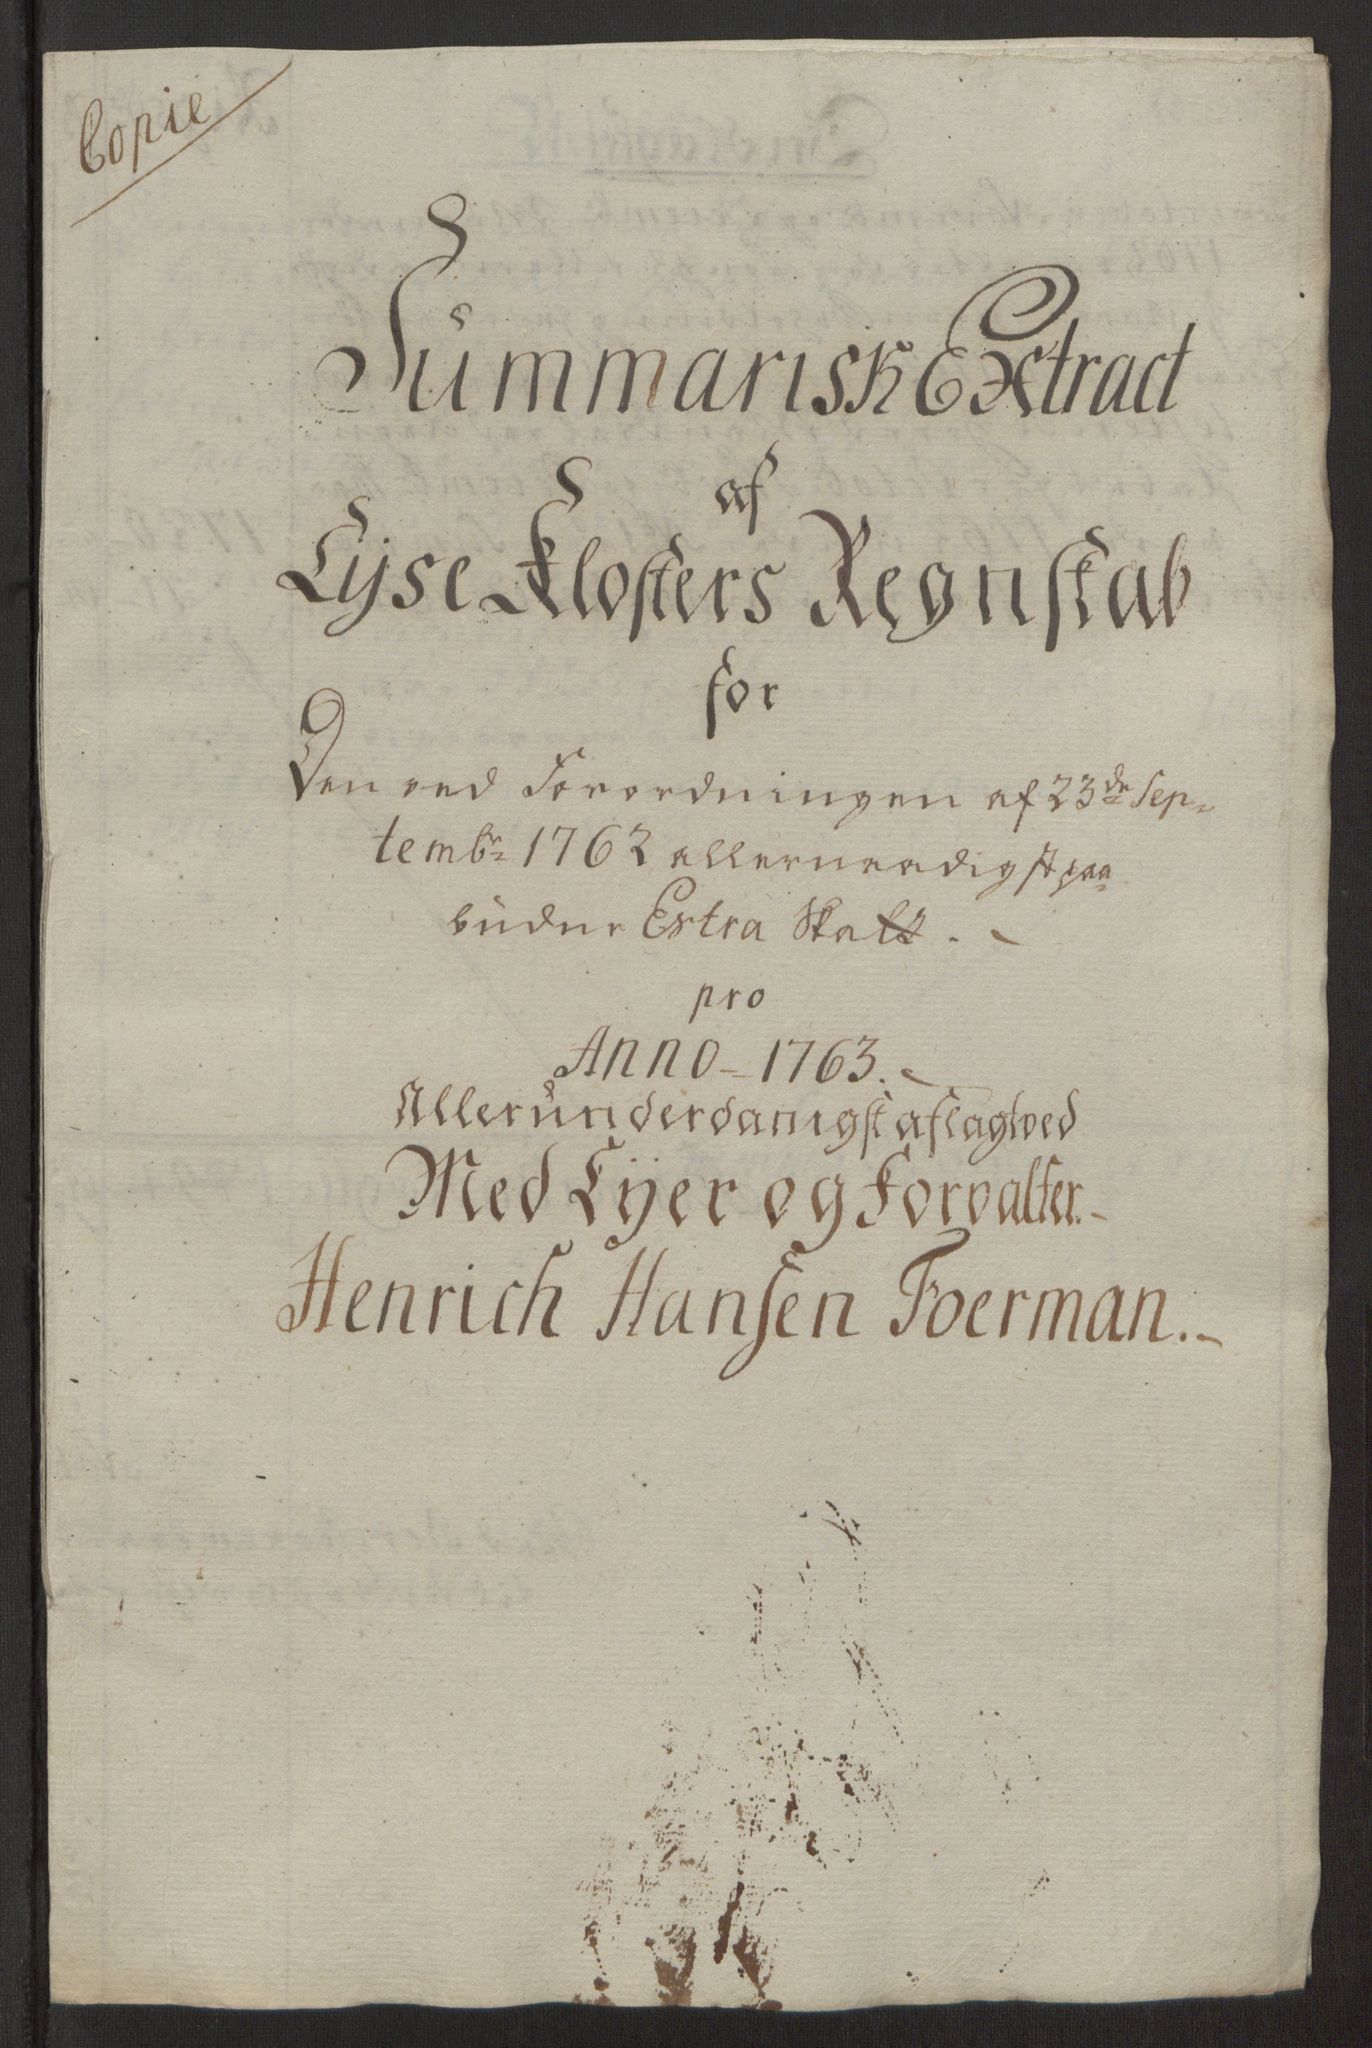 Copie
Summarisk Extract
af
Lyse Klosters Regnskab
for
Den ved Forordningen af 23de Sep-
tembr 1762 allernaadigst paa
budne Extra Skatt.
pro
Anno - 1763.
Allerunderdanigst aflagt ved
Med Eyer og Forvalter.
Henrich Hansen Foerman.